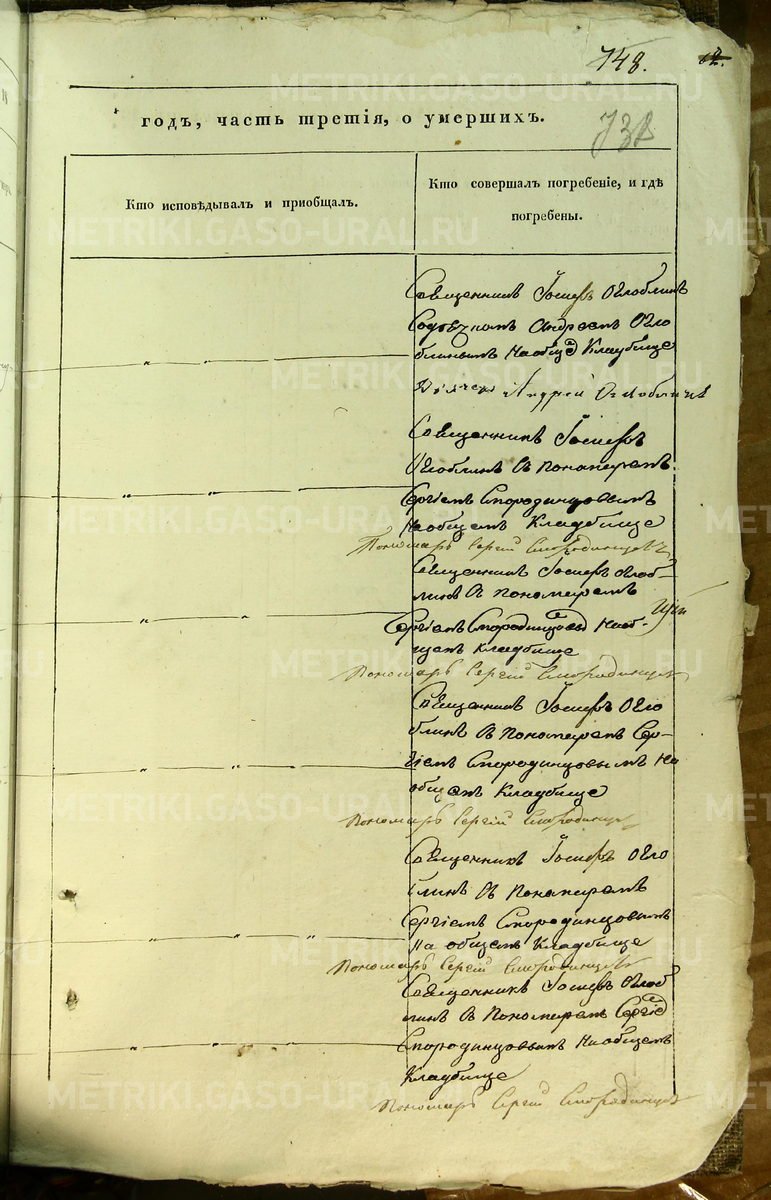 148.
12.
годъ, часть третія, о умершихъ.
Кто исповѣдывалъ и пріобщалъ.
Кто совершалъ погребеніе, и гдѣ
погребены.
Священникъ Іосифъ Оглоблинъ
Андреемъ Огло
блинымъ на общемъ Кладбище
Андрей Оглоблинъ
Священникъ Іосифъ
Оглоблинъ съ Пономаремъ
Сергіемъ Смородинцовымъ
На общемъ Кладбище
Пономарь Сергій Смородинцевъ
Священникъ Іосифъ Оглоб-
линъ съ Пономаремъ
Сергіемъ Смородинцовы На об-
щемъ Кладбище
Пономарь Сергій Смородинцевъ
Священникъ Іосифъ Огло
блинъ съ Пономаремъ Сер-
гіемъ Смородинцовымъ На
общемъ Кладбище
Пономарь Сергій Смородинцевъ
Священникъ Іосифъ Огло
блинъ съ Пономаремъ
Сергіемъ Смородинцовымъ
На общемъ Кладбище
Пономарь Сергій Смородинцевъ
Священникъ Іосифъ Оглоб
линъ съ Пономаремъ Сергіе
Смородинцовымъ На общемъ
Кладбище
Пономарь Сергій Смородинцевъ
METRIKI.GASO-URAL.RU